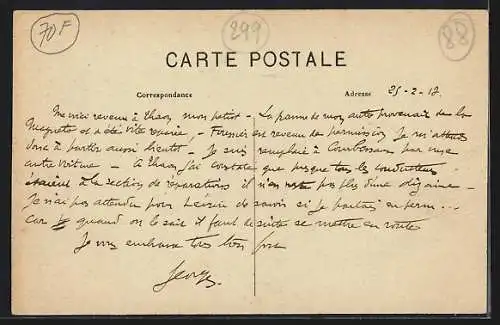 70F
299
88
CARTE POSTALE
Correspondance
Adresse
25-2-18
Me voici revenu à Thaon mon petiot - La panne de mon auto provenait de la
Magneto et a été vite réparée, - est revenu de permission Je m'attends
donc à partir aussi bientôt - Je suis remplacé à par une
autre voiture - à Thaon j'ai constaté que presque tous les conducteurs
étaient à la section de réparations il n'en reste pas plus d'une dizaine -
Je n'ai pas attendu pour savoir si je partais en perm...
Car quand on le sait il faut de suite se mettre en route
Je vous embrasse tous bien fort
Georges